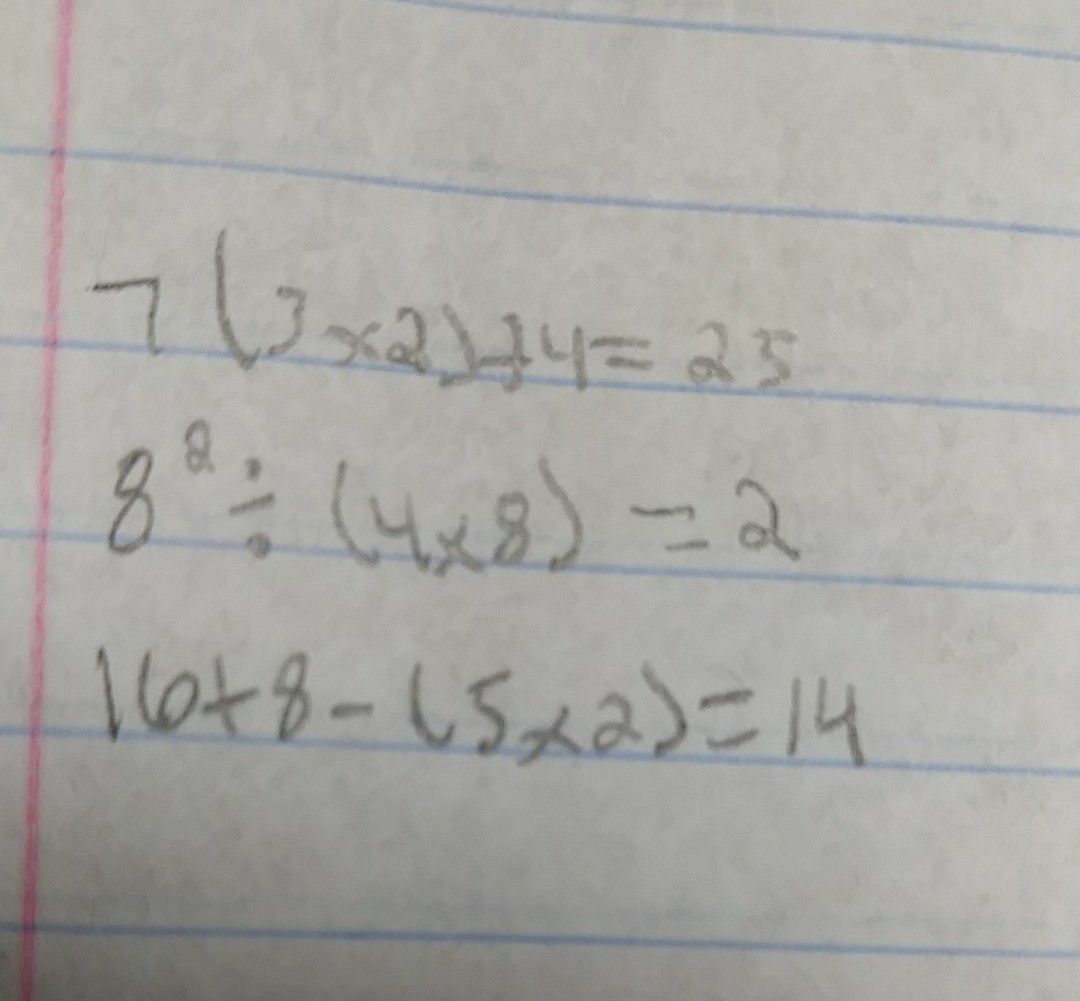 7(3×2)+4=25
8²÷(4×8)=2
16+8-(5×2)=14